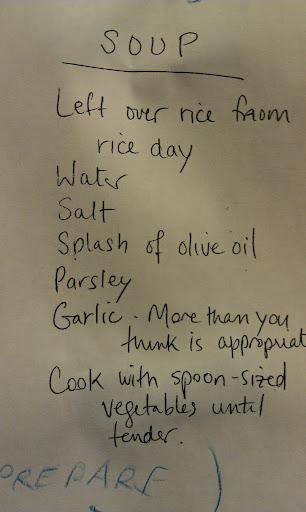 SOUP
Left over rice fraom
rice day
Water
Salt
Splash of olive oil
Parsley
Garlic. More than you
think is appropriat
Cook with spoon-sized
vegetables until
tender.
PREPARE)